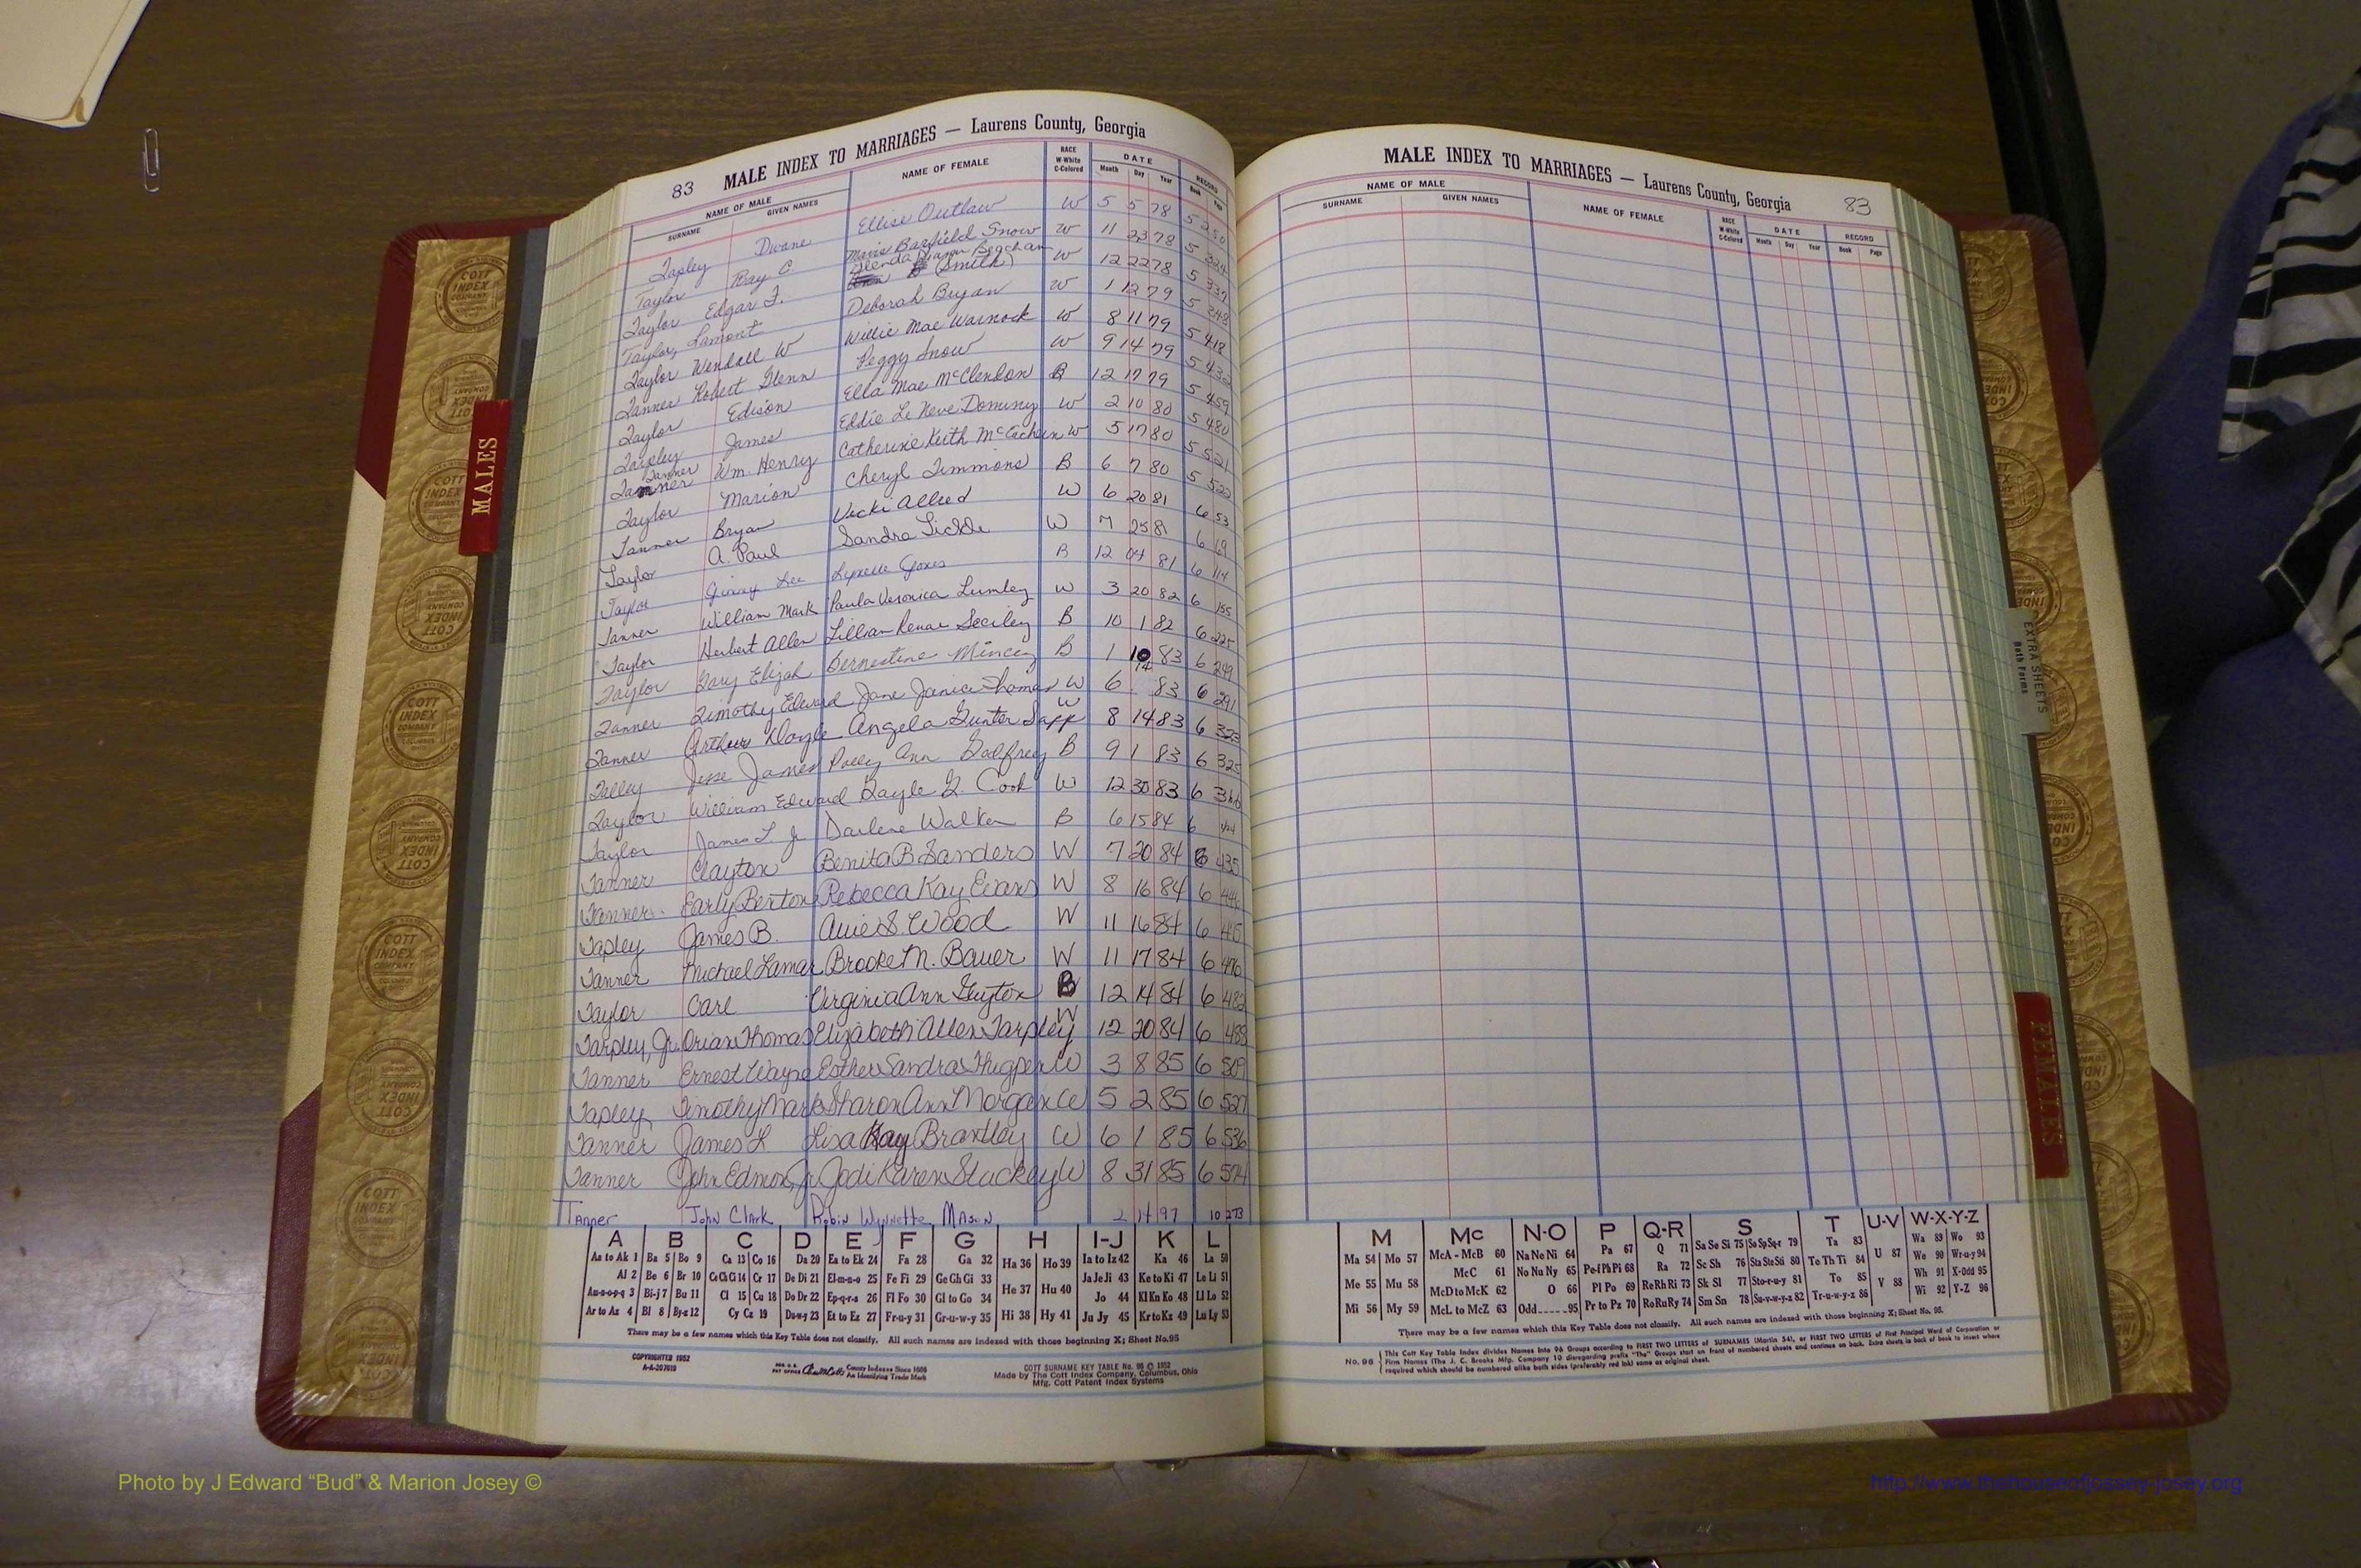 83 MALE INDEX TO MARRIAGES — Laurens County, Georgia
NAME OF MALE NAME OF FEMALE RACE W-White C-Colored DATE RECORD
SURNAME GIVEN NAMES Month Day Year Book Page
Tapley Dwane Ellise Outlaw W 5 5 78 5 250
Taylor Ray C. Mavis Barfield Snow W 11 23 78 5 324
Taylor Edgar F. Glenda Dianna Beacham (Smith) W 12 22 78 5 339
Taylor, Lamont Deborah Bryan W 1 12 79 5 348
Taylor Wendall W Willie Mae Warnock W 8 11 79 5 418
Tanner Robert Glenn Peggy Snow W 9 14 79 5 432
Taylor Edison Ella Mae McClendon B 12 17 79 5 459
Tarpley James Eddie Le Neve Dominy W 2 10 80 5 480
Tanner Tanner Wm. Henry Catherine Keith McEachern W 5 17 80 5 521
Taylor Marion Cheryl Timmons B 6 7 80 5 522
Tanner Bryan Vicki Allred W 6 20 81 6 53
Taylor A. Paul Sandra Sickle W 7 25 81 6 69
Taylor Jimmy Lee B 12 04 81 6 114
Tanner William Mark Paula Veronica Lumley W 3 20 82 6 155
Taylor Herbert Allen Lillian Renae B 10 1 82 6 225
Taylor Gary Elijah Bernestine Mincey B 1 10 83 6 249
Tanner Timothy Edward Jane Janice Thomas W 6 14 83 6 291
Tanner Arthur Doyle Angela Gunter Sapp W 8 14 83 6 323
Talley Jesse James Polly Ann Godfrey B 9 1 83 6 325
Taylor William Edward Gayle G. Cook W 12 30 83 6 366
Taylor James L. Jr Darlene Walker B 6 15 84 6
Tanner Clayton Benita B Sanders W 7 20 84 6 435
Tanner Early Benton Rebecca Kay Evans W 8 16 84 6
Tapley James B. S. Wood W 11 16 84 6
Tanner Michael Lamar Brooke M. Bauer W 11 17 84 6 476
Taylor Carl Virginia Ann Guyton B 12 14 84 6 482
Tarpley, Jr. Orian Thomas Elizabeth Allen Tarpley W 12 20 84 6 488
Tanner Ernest Wayne Esther Sandra W 3 8 85 6 509
Tapley Timothy Mark Sharon Ann Morgan W 5 2 85 6 527
Tanner James L Lisa Kay Brantley W 6 1 85 6 536
Tanner John Edmon, Jr Jodi Karen Stuckey W 8 31 85 6 574
Tanner John Clark Robin Wynnette Mason 2 14 97 10 273
A B C D E F G H I-J K L
Aa to Ak 1 Ba 5 Bo 9 Ca 13 Co 16 Da 20 Ea to Ek 24 Fa 28 Ga 32 Ha 36 Ho 39 Ia to Iz 42 Ka 46 La 50
Al 2 Be 6 Br 10 Ce Ch Ci 14 Cr 17 De Di 21 El-m-n-o 25 Fe Fi 29 Ge Gh Gi 33 He 37 Hu 40 Ja Je Ji 43 Ke to Ki 47 Le Li 51
Am-n-o-p-q 3 Bi-j 7 Bu 11 Cl 15 Cu 18 Do Dr 22 Ep-q-r-s 26 Fl Fo 30 Gl to Go 34 Jo 44 Kl Kn Ko 48 Ll Lo 52
Ar to Az 4 Bl 8 By-z 12 Cy Cz 19 Du-w-y 23 Et to Ez 27 Fr-u-y 31 Gr-u-w-y 35 Hi 38 Hy 41 Ju Jy 45 Kr to Kz 49 Lu Ly 53
There may be a few names which this Key Table does not classify. All such names are indexed with those beginning X; Sheet No. 95
COPYRIGHTED 1952
A-A-207619
REG. U.S. PAT OFFICE County Indexes Since 1888
An Identifying Trade Mark
COTT SURNAME KEY TABLE No. 96 © 1952
Made by The Cott Index Company, Columbus, Ohio
Mfg. Cott Patent Index Systems
MALE INDEX TO MARRIAGES — Laurens County, Georgia 83
NAME OF MALE NAME OF FEMALE RACE W-White C-Colored DATE RECORD
SURNAME GIVEN NAMES Month Day Year Book Page
M Mc N-O P Q-R S T U-V W-X-Y-Z
Ma 54 Mo 57 McA - McB 60 Na Ne Ni 64 Pa 67 Q 71 Sa Se Si 75 So Sp Sq-r 79 Ta 83 U 87 Wa 89 Wo 93
Me 55 Mu 58 McC 61 No Nu Ny 65 Pe-f Ph Pi 68 Ra 72 Sc Sh 76 Sta Ste Sti 80 Te Th Ti 84 We 90 Wr-u-y 94
McD to McK 62 O 66 Pl Po 69 Re Rh Ri 73 Sk Sl 77 Sto-r-u-y 81 To 85 V 88 Wh 91 X-Odd 95
Mi 56 My 59 McL to McZ 63 Odd 95 Pr to Pz 70 Ro Ru Ry 74 Sm Sn 78 Su-v-w-y-z 82 Tr-u-w-y-z 86 Wi 92 Y-Z 96
There may be a few names which this Key Table does not classify. All such names are indexed with those beginning X; Sheet No. 95.
No. 96 This Cott Key Table Index divides Names into 96 Groups according to FIRST TWO LETTERS of SURNAMES (Martin 54), or FIRST TWO LETTERS of First Principal Word of Corporation or
Firm Names (The J. C. Brooks Mfg. Company 10 disregarding prefix "The") Groups start on front of numbered sheets and continue on back. Extra sheets in back of book to insert where
required which should be numbered alike both sides (preferably red ink) same as original sheet.
MALES
EXTRA SHEETS
Both Forms
FEMALES
COTT INDEX COMPANY
Photo by J Edward “Bud” & Marion Josey ©
http://www.thehouseofjossey-josey.org